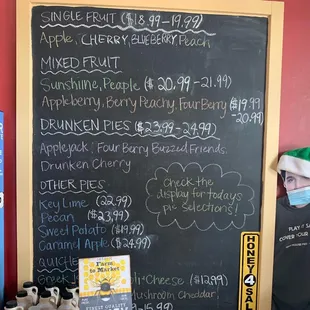 SINGLE FRUIT ($18.99-19.99)
Apple, CHERRY, BLUEBERRY Peach
MIXED FRUIT
Sunshine, Peaple ($20.99-21.99)
Appleberry, Berry Peachy, Four Berry ($19.99
-20.99)
DRUNKEN PIES ($23.99-24.99)
Applejack, Four Berry Buzzed Friends
Drunken Cherry
OTHER PIES
Key Lime (22.99)
Pecan ($23.99)
Sweet Potato ($19.99)
Caramel Apple ($24.99)
Check the
display for todays
pie selections!
QUICHE
Greek
Cheese ($12.99)
Mushroom Cheddar,
-15.99)
Farm
to Market
HONEY 4 SALE
PLAY SAFE
COVER YOUR